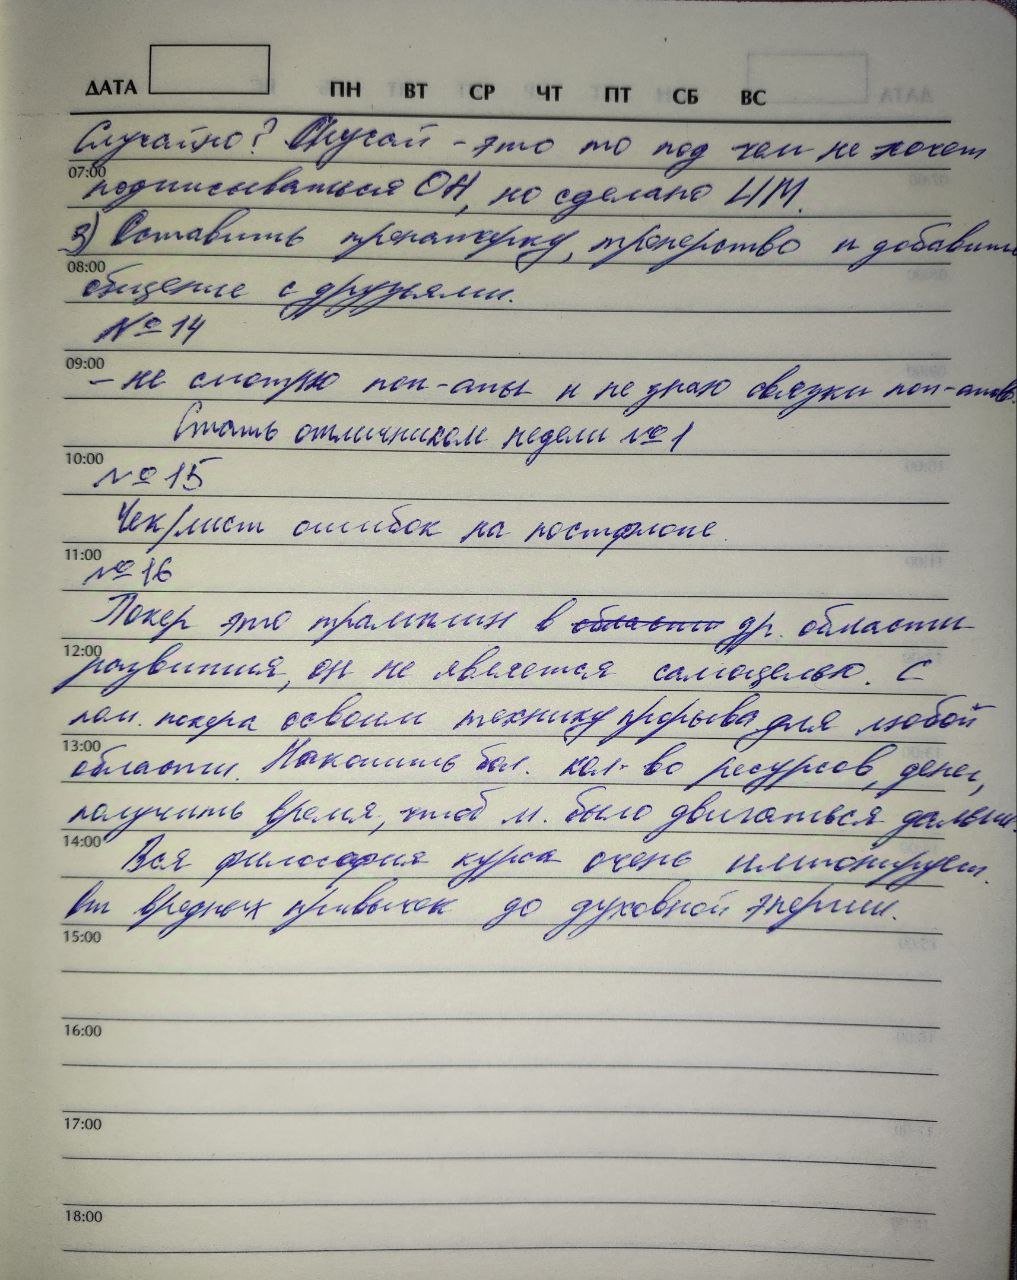 ДАТА ПН ВТ СР ЧТ ПТ СБ ВС
Случайно? Случай - это то под чем не хочет
07:00
подписываться ОН, но сделано ИМ.
3) Оставить тренажерку, тренерство и добавить
08:00
общение с друзьями.
№14
09:00
- не смотрю поп-апы и не знаю связки поп-апов.
Стать отличником недели №1
10:00
№15
Чек/лист ошибок на постфлопе
11:00
№16
Покер это трамплин в области др. области
12:00
развития, он не является самоцелью. С
пом. покера освоим технику прорыва для любой
13:00
области. Накопить бол. кол-во ресурсов, денег,
получить время, чтоб м. было двигаться дальше.
14:00
Вся философия курса очень импонирует.
От вредных привычек до духовной энергии.
15:00
16:00
17:00
18:00